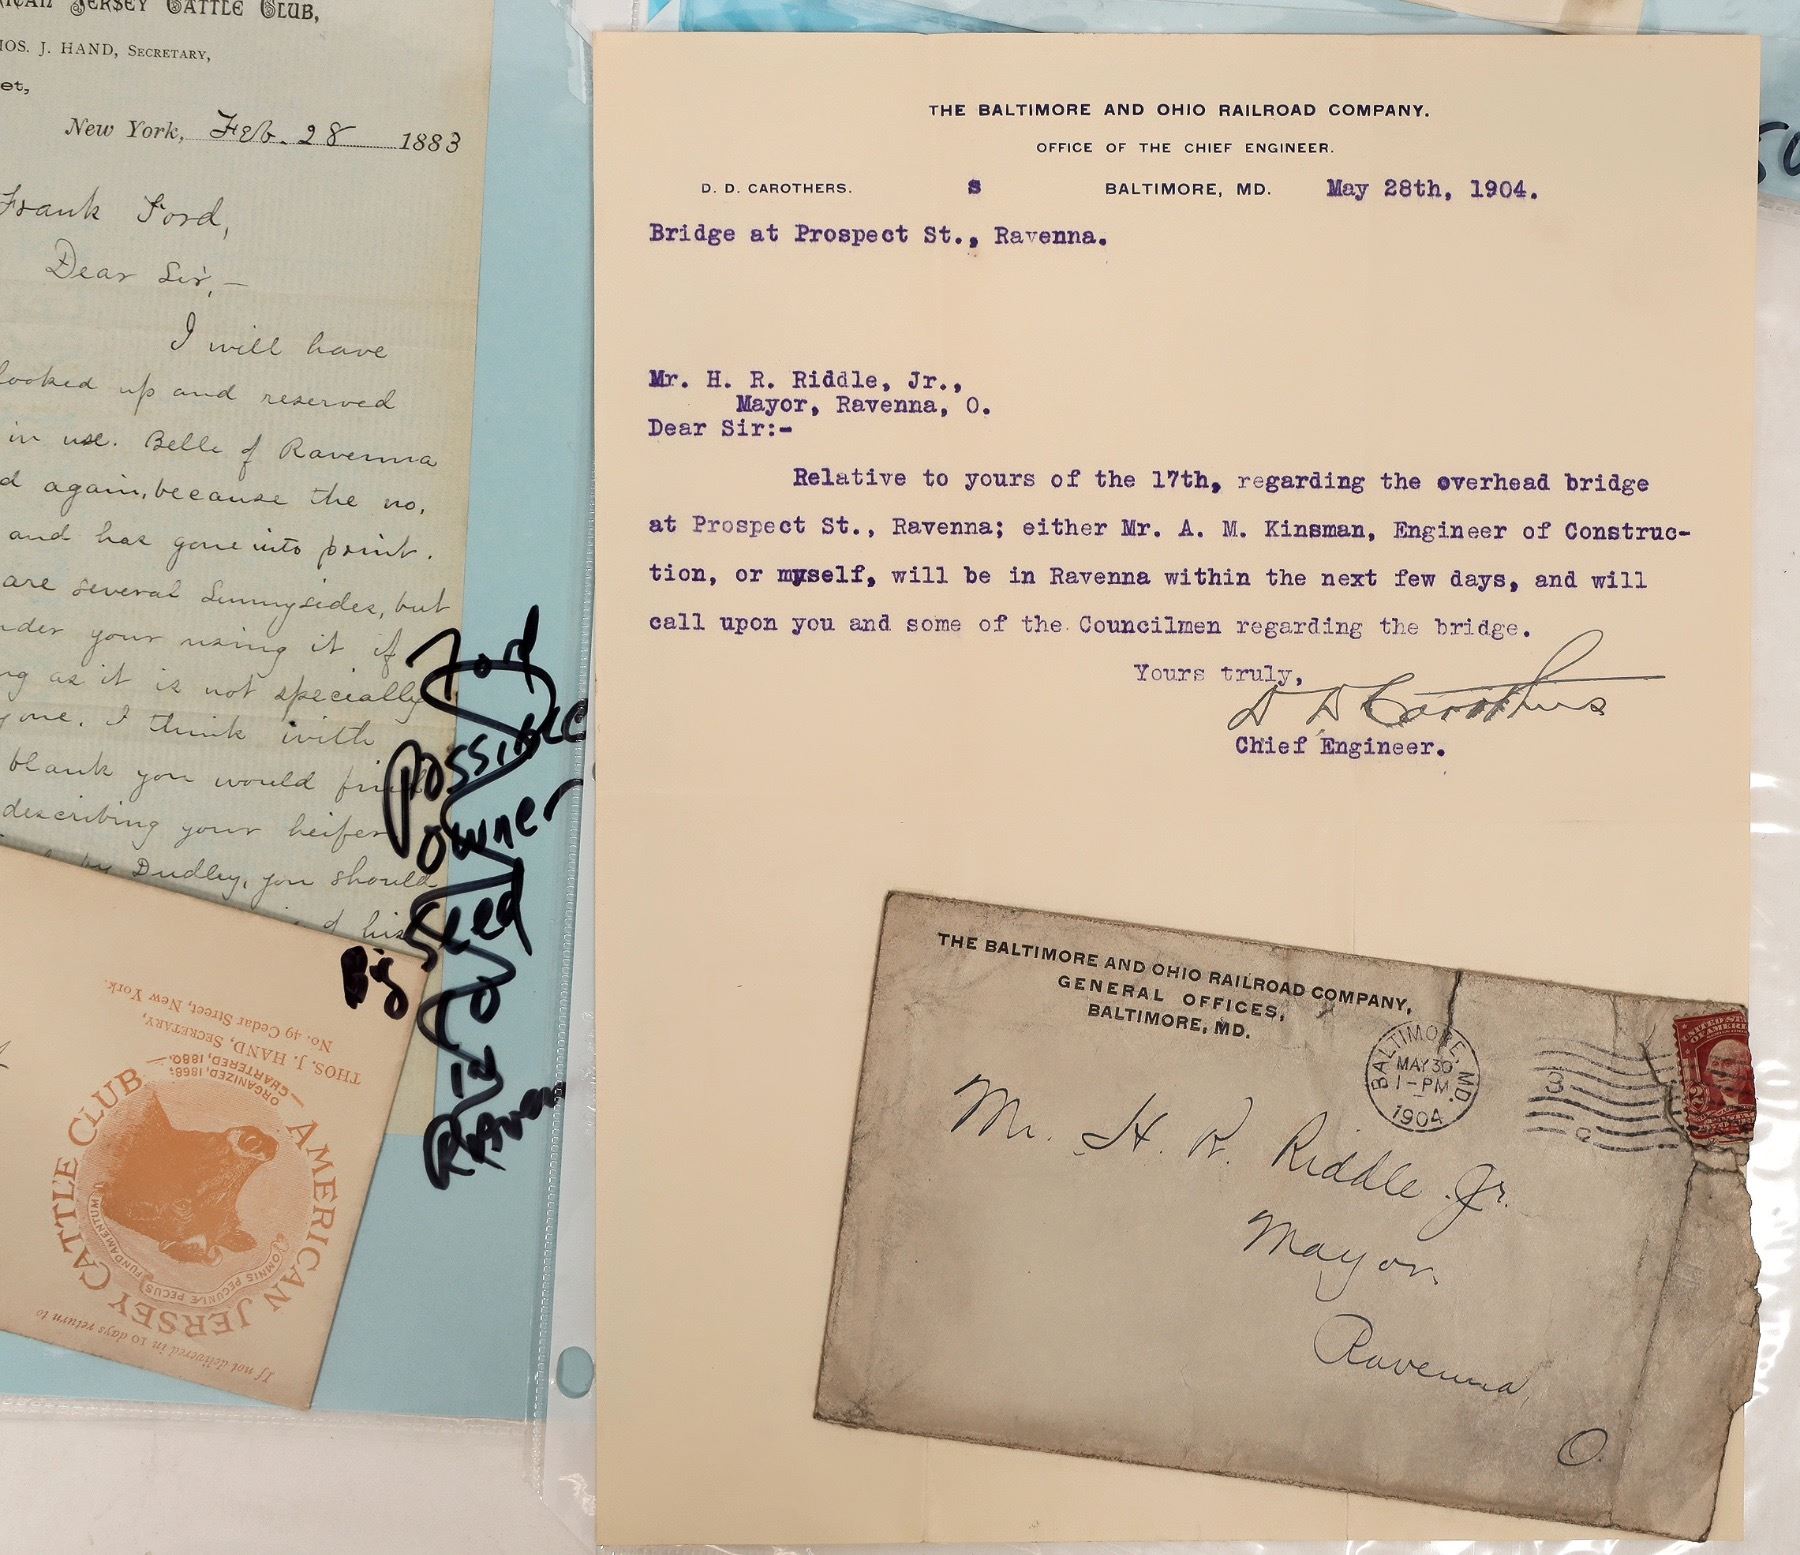 JERSEY CATTLE CLUB,
J. HAND, SECRETARY,
New York, Feb. 28 1883
Frank Ford,
Dear Sir,—
I will have
looked up and reserved
in use. Belle of Ravenna
again, because the no.
and has gone into print.
are several Sunnysides, but
your using it if
as it is not specially
I think with
blank you would find
describing your heifer
by Dudley, you should
of his
Ford
Possible
Owner
Big Seed
Raven
THOS. J. HAND, SECRETARY,
No. 49 Cedar Street, New York.
AMERICAN JERSEY CATTLE CLUB
ORGANIZED, 1868;
CHARTERED, 1880.
OMNIS PECUNIÆ PECUS FUNDAMENTUM
If not delivered in 10 days return to
THE BALTIMORE AND OHIO RAILROAD COMPANY.
OFFICE OF THE CHIEF ENGINEER.
D. D. CAROTHERS. s BALTIMORE, MD. May 28th, 1904.
Bridge at Prospect St., Ravenna.
Mr. H. R. Riddle, Jr.,
Mayor, Ravenna, O.
Dear Sir:-
Relative to yours of the 17th, regarding the overhead bridge
at Prospect St., Ravenna; either Mr. A. M. Kinsman, Engineer of Construc-
tion, or myself, will be in Ravenna within the next few days, and will
call upon you and some of the Councilmen regarding the bridge.
Yours truly,
D D Carothers
Chief Engineer.
THE BALTIMORE AND OHIO RAILROAD COMPANY,
GENERAL OFFICES,
BALTIMORE, MD.
BALTIMORE, MD.
MAY 30
1-PM
1904
3
Mr. H. R. Riddle Jr.
Mayor.
Ravenna,
O.